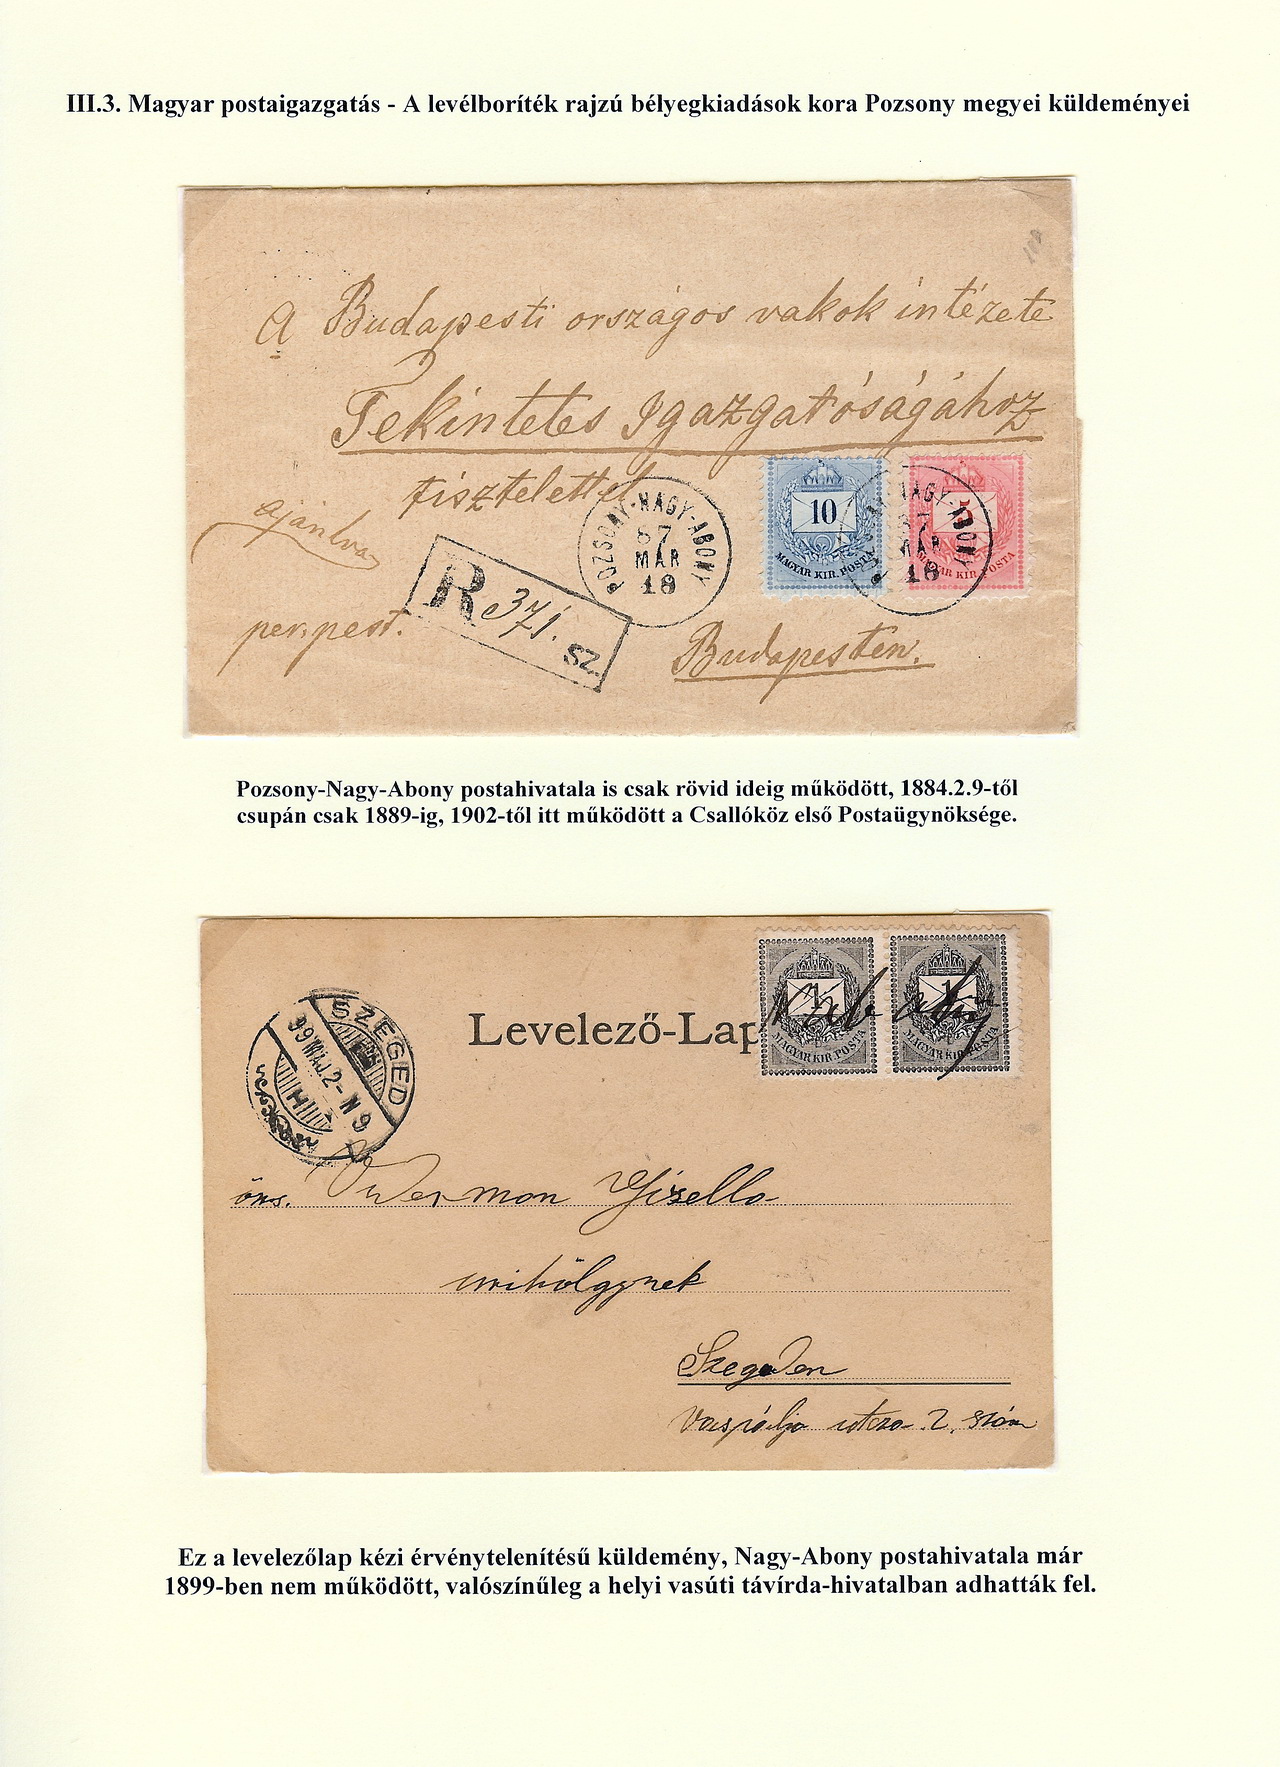 III.3. Magyar postaigazgatás - A levélboríték rajzú bélyegkiadások kora Pozsony megyei küldeményei
A Budapesti országos vakok intézete
Tekintetes Igazgatóságához
tisztelettel
ajánlva
per. pest.
R 371. SZ.
POZSONY-NAGY-ABONY
87
MÁR
18
10
MAGYAR KIR. POSTA
5
MAGYAR KIR. POSTA
NAGY-ABONY
87
MÁR
18
Budapesten.
Pozsony-Nagy-Abony postahivatala is csak rövid ideig működött, 1884.2.9-től
csupán csak 1889-ig, 1902-től itt működött a Csallóköz első Postaügynöksége.
Levelező-Lap
1
MAGYAR KIR. POSTA
1
MAGYAR KIR. POSTA
SZEGED
99 MÁJ. 2 - N 9
öns. Gizella
urihölgynek
Szegeden
utcza 2. szám
Ez a levelezőlap kézi érvénytelenítésű küldemény, Nagy-Abony postahivatala már
1899-ben nem működött, valószínűleg a helyi vasúti távírda-hivatalban adhatták fel.